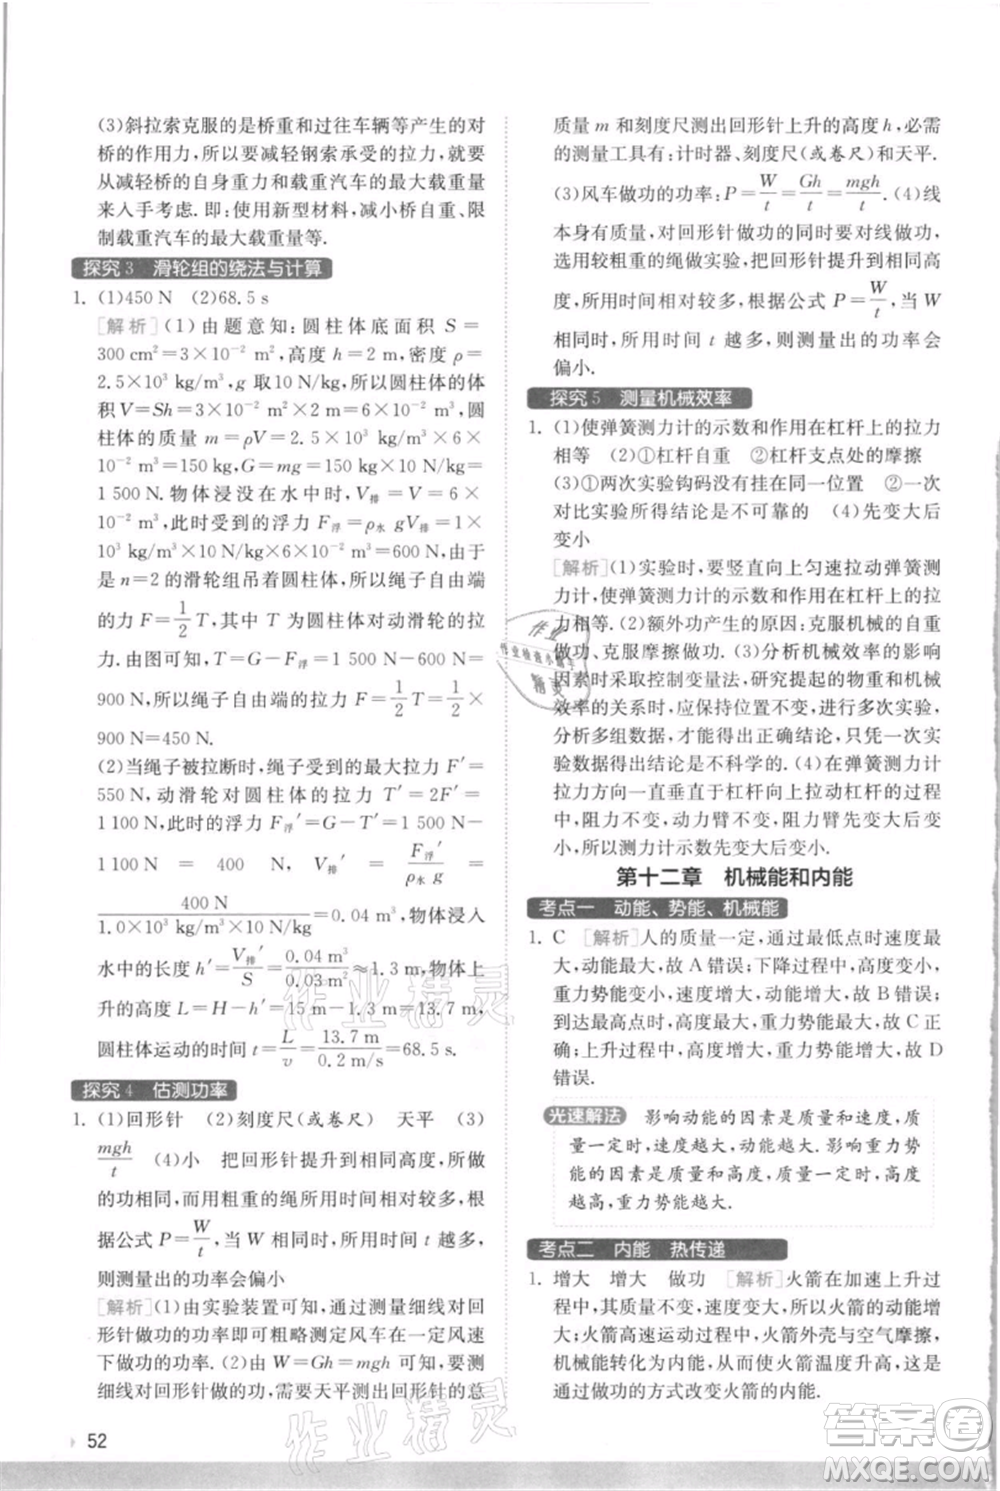 (3)斜拉索克服的是桥重和过往车辆等产生的对
桥的作用力,所以要减轻钢索承受的拉力,可以
从减轻桥的自身重力和载重汽车的最大载重量
来入手考虑.即:使用新型材料,减小桥自重、限
制载重汽车的最大载重量等.
探究3 滑轮组的绕法与计算
1. (1)450 N (2)68.5 s
[解析](1)由题意知:圆柱体底面积 S=
300 cm²=3×10⁻² m²,高度 h=2 m,密度 ρ=
2.5×10³ kg/m³,g 取10 N/kg,所以圆柱体的体
积V=Sh=3×10⁻² m²×2 m=6×10⁻² m³,圆
柱体的质量 m=ρV=2.5×10³ kg/m³×6×
10⁻² m³=150 kg,G=mg=150 kg×10 N/kg=
1 500 N.物体浸没在水中时,V排=V=6×
10⁻² m³,此时受到的浮力 F浮=ρ水 gV排=1×
10³ kg/m³×10 N/kg×6×10⁻² m³=600 N,由于
是 n=2 的滑轮组吊着圆柱体,所以绳子自由端
的拉力 F=1/2 T,T 为圆柱体对动滑轮的拉
力.由图可知,T=G-F浮=1 500 N-600 N=
900 N,所以绳子自由端的拉力 F=1/2 T=1/2×
900 N=450 N.
(2)当绳子被拉断时,绳子承受的最大拉力 F′=
550 N,动滑轮对圆柱体的拉力 T′=2F′=
1 100 N,此时的浮力 F浮′=G-T′=1 500 N-
1 100 N = 400 N, V排′ = F浮′/(ρ水 g) =
400 N/(1.0×10³ kg/m³×10 N/kg)=0.04 m³,物体浸入
水中的长度 h′=V排′/S=0.04 m³/0.03 m²≈1.3 m,物体上
升的高度 L=H-h′=15 m-1.3 m=13.7 m,
圆柱体运动的时间 t=L/v=13.7 m/0.2 m/s=68.5 s.
探究4 估测功率
1. (1)回形针 (2)刻度尺(或卷尺) 天平 (3)
mgh/t (4)小 把回形针提升到相同高度,所
做的功相同,而用粗重的绳所用时间相对较多,根
据公式 P=W/t,当 W 相同时,时间 t 越多,
则测量出的功率会偏小
[解析](1)由实验装置可知,通过测量细线对回
形针做功的功率即可粗略测定风车在一定风速
下做功的功率.(2)由 W=Gh=mgh 可知,要测
细线对回形针做的功,需要天平测出回形针的总
质量 m 和刻度尺测出回形针上升的高度 h,必需
的测量工具有:计时器、刻度尺(或卷尺)和天平.
(3)风车做功的功率:P=W/t=Gh/t=mgh/t.(4)线
本身有质量,对回形针做功的同时对线也做功,
若用较粗重的绳做实验,把回形针提升到相同高
度,所用时间相对较多,根据公式 P=W/t,当
W 相同时,所用时间 t 越多,则测量出的功率会
偏小.
探究5 测量机械效率
1. (1)使弹簧测力计的示数和作用在杠杆上的拉力
相等 (2)①杠杆自重 ②杠杆支点处的摩擦
(3)①两次实验钩码没有挂在同一位置 ②一次
对比实验所得结论是不可靠的 (4)先变大后
变小
[解析](1)实验时,要竖直向上匀速拉动弹簧测
力计,使弹簧测力计的示数等于作用在杠杆上的拉
力相等.(2)额外功产生的原因:克服机械的自重
做功、克服摩擦做功.(3)分析机械效率的影响
因素时采取控制变量法,研究提起的物重和机械
效率的关系时,应保持位置不变,进行多次实验,
分析多组数据,才可以得出正确结论,只凭一次
实验数据得出结论是不科学的.(4)在弹簧测力计
拉力方向一直垂直于杠杆拉动杠杆的过程
中,阻力不变,动力臂不变,阻力臂先变大后变
小,故测力计示数先变大后变小.
第十二章 机械能和内能
考点一 动能、势能、机械能
1. C [解析]人的质量一定,通过最低点时速度最
大,动能最大,故 A 错误;下降过程中,高度变小,
重力势能变小,速度增大,动能增大,故 B 错误;
达到最高点时,高度最大,重力势能最大,故 C正
确;上升过程中,高度增大,重力势能增大,故 D
错误.
光速解法 影响动能的因素是质量和速度,质
量一定时,速度越大,动能越大.影响重力势
能的因素是质量和高度,质量一定时,高度
越高,重力势能越大.
考点二 内能 热传递
1. 增大 增大 做功 [解析]火箭在加速上升过程
中,其质量不变,速度变大,所以火箭的动能增
大;火箭高速运动过程中,火箭外壳与空气摩擦,
机械能转化为内能,从而使火箭温度升高,这是
通过做功的方式改变火箭的内能.
52
作业精灵
作业精灵
答案圈
MXQE.COM